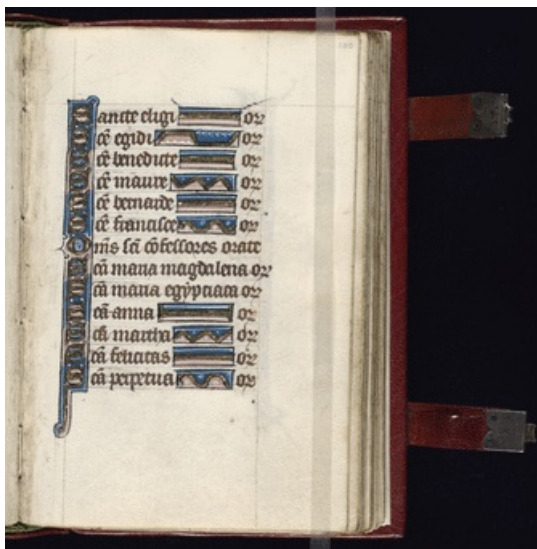 Sancte eligi or
Scē egidi or
Scē benedicte or
Scē maure or
Scē bernarde or
Scē francisce or
Om̄s sc̄i cōfessores orate
Scā maria magdalena or
Scā maria egyptiaca or
Scā anna or
Scā martha or
Scā felicitas or
Scā perpetua or